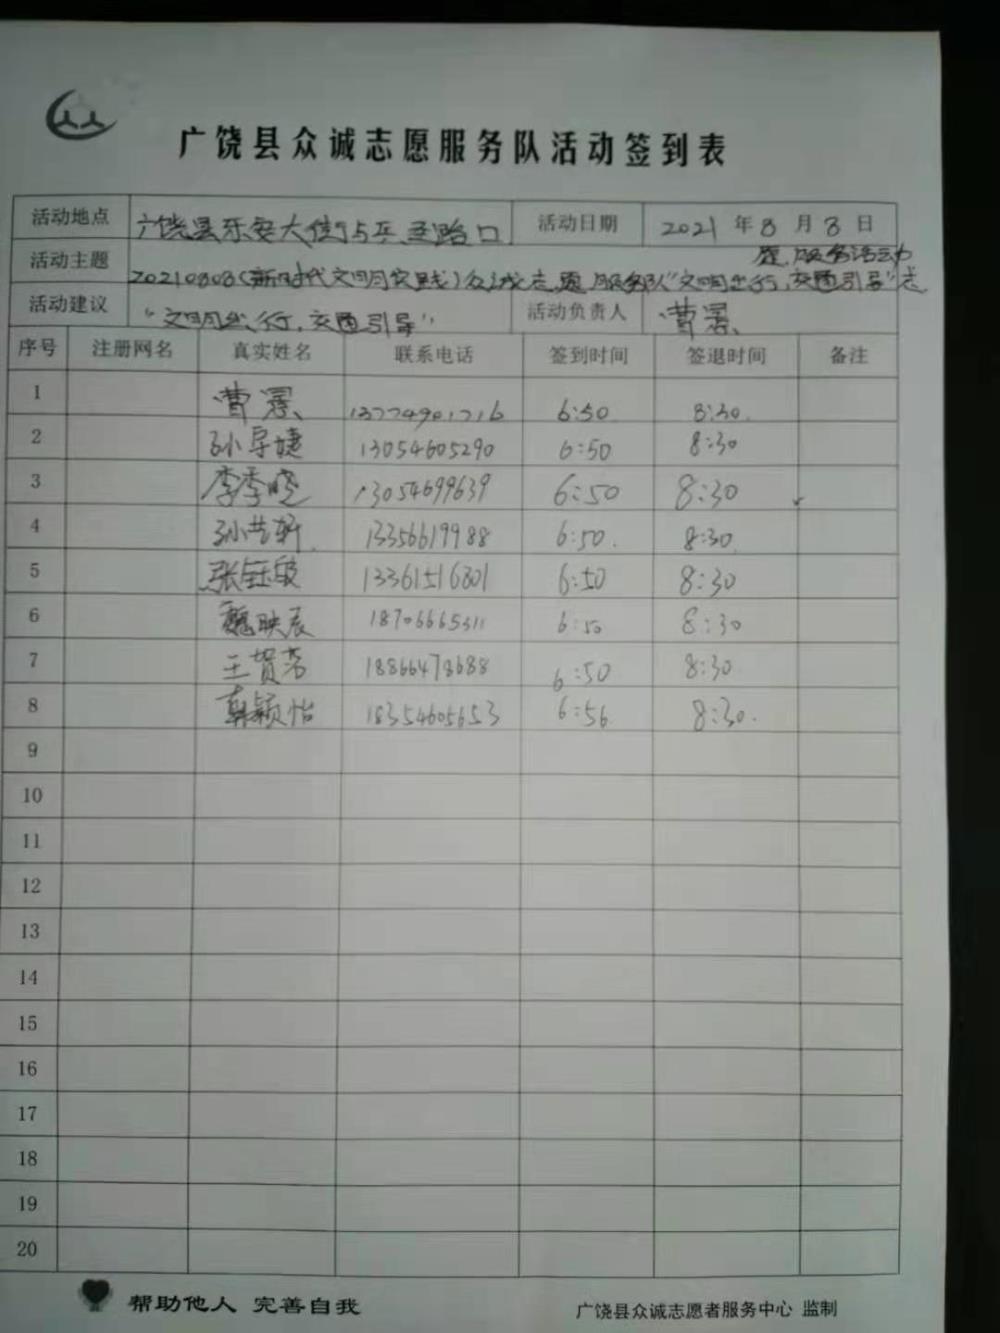 广饶县众诚志愿服务队活动签到表
活动地点 广饶县乐安大街与乒乓路口 活动日期 2021 年 8 月 8 日
愿服务活动
活动主题 20210808(新时代文明实践)众诚志愿服务队"文明出行,交通引导"志
活动建议 "文明出行,交通引导" 活动负责人 曹
序号 注册网名 真实姓名 联系电话 签到时间 签退时间 备注
1 曹 6:50 8:30
2 孙 婕 13054605290 6:50 8:30
3 李季晓 13054699639 6:50 8:30
4 孙艺轩 13356619988 6:50 8:30
5 张钰 13361516801 6:50 8:30
6 魏映辰 18706665311 6:50 8:30
7 王贺 18866478688 6:50 8:30
8 韩颖怡 18354605653 6:56 8:30
9
10
11
12
13
14
15
16
17
18
19
20
帮助他人 完善自我 广饶县众诚志愿者服务中心 监制